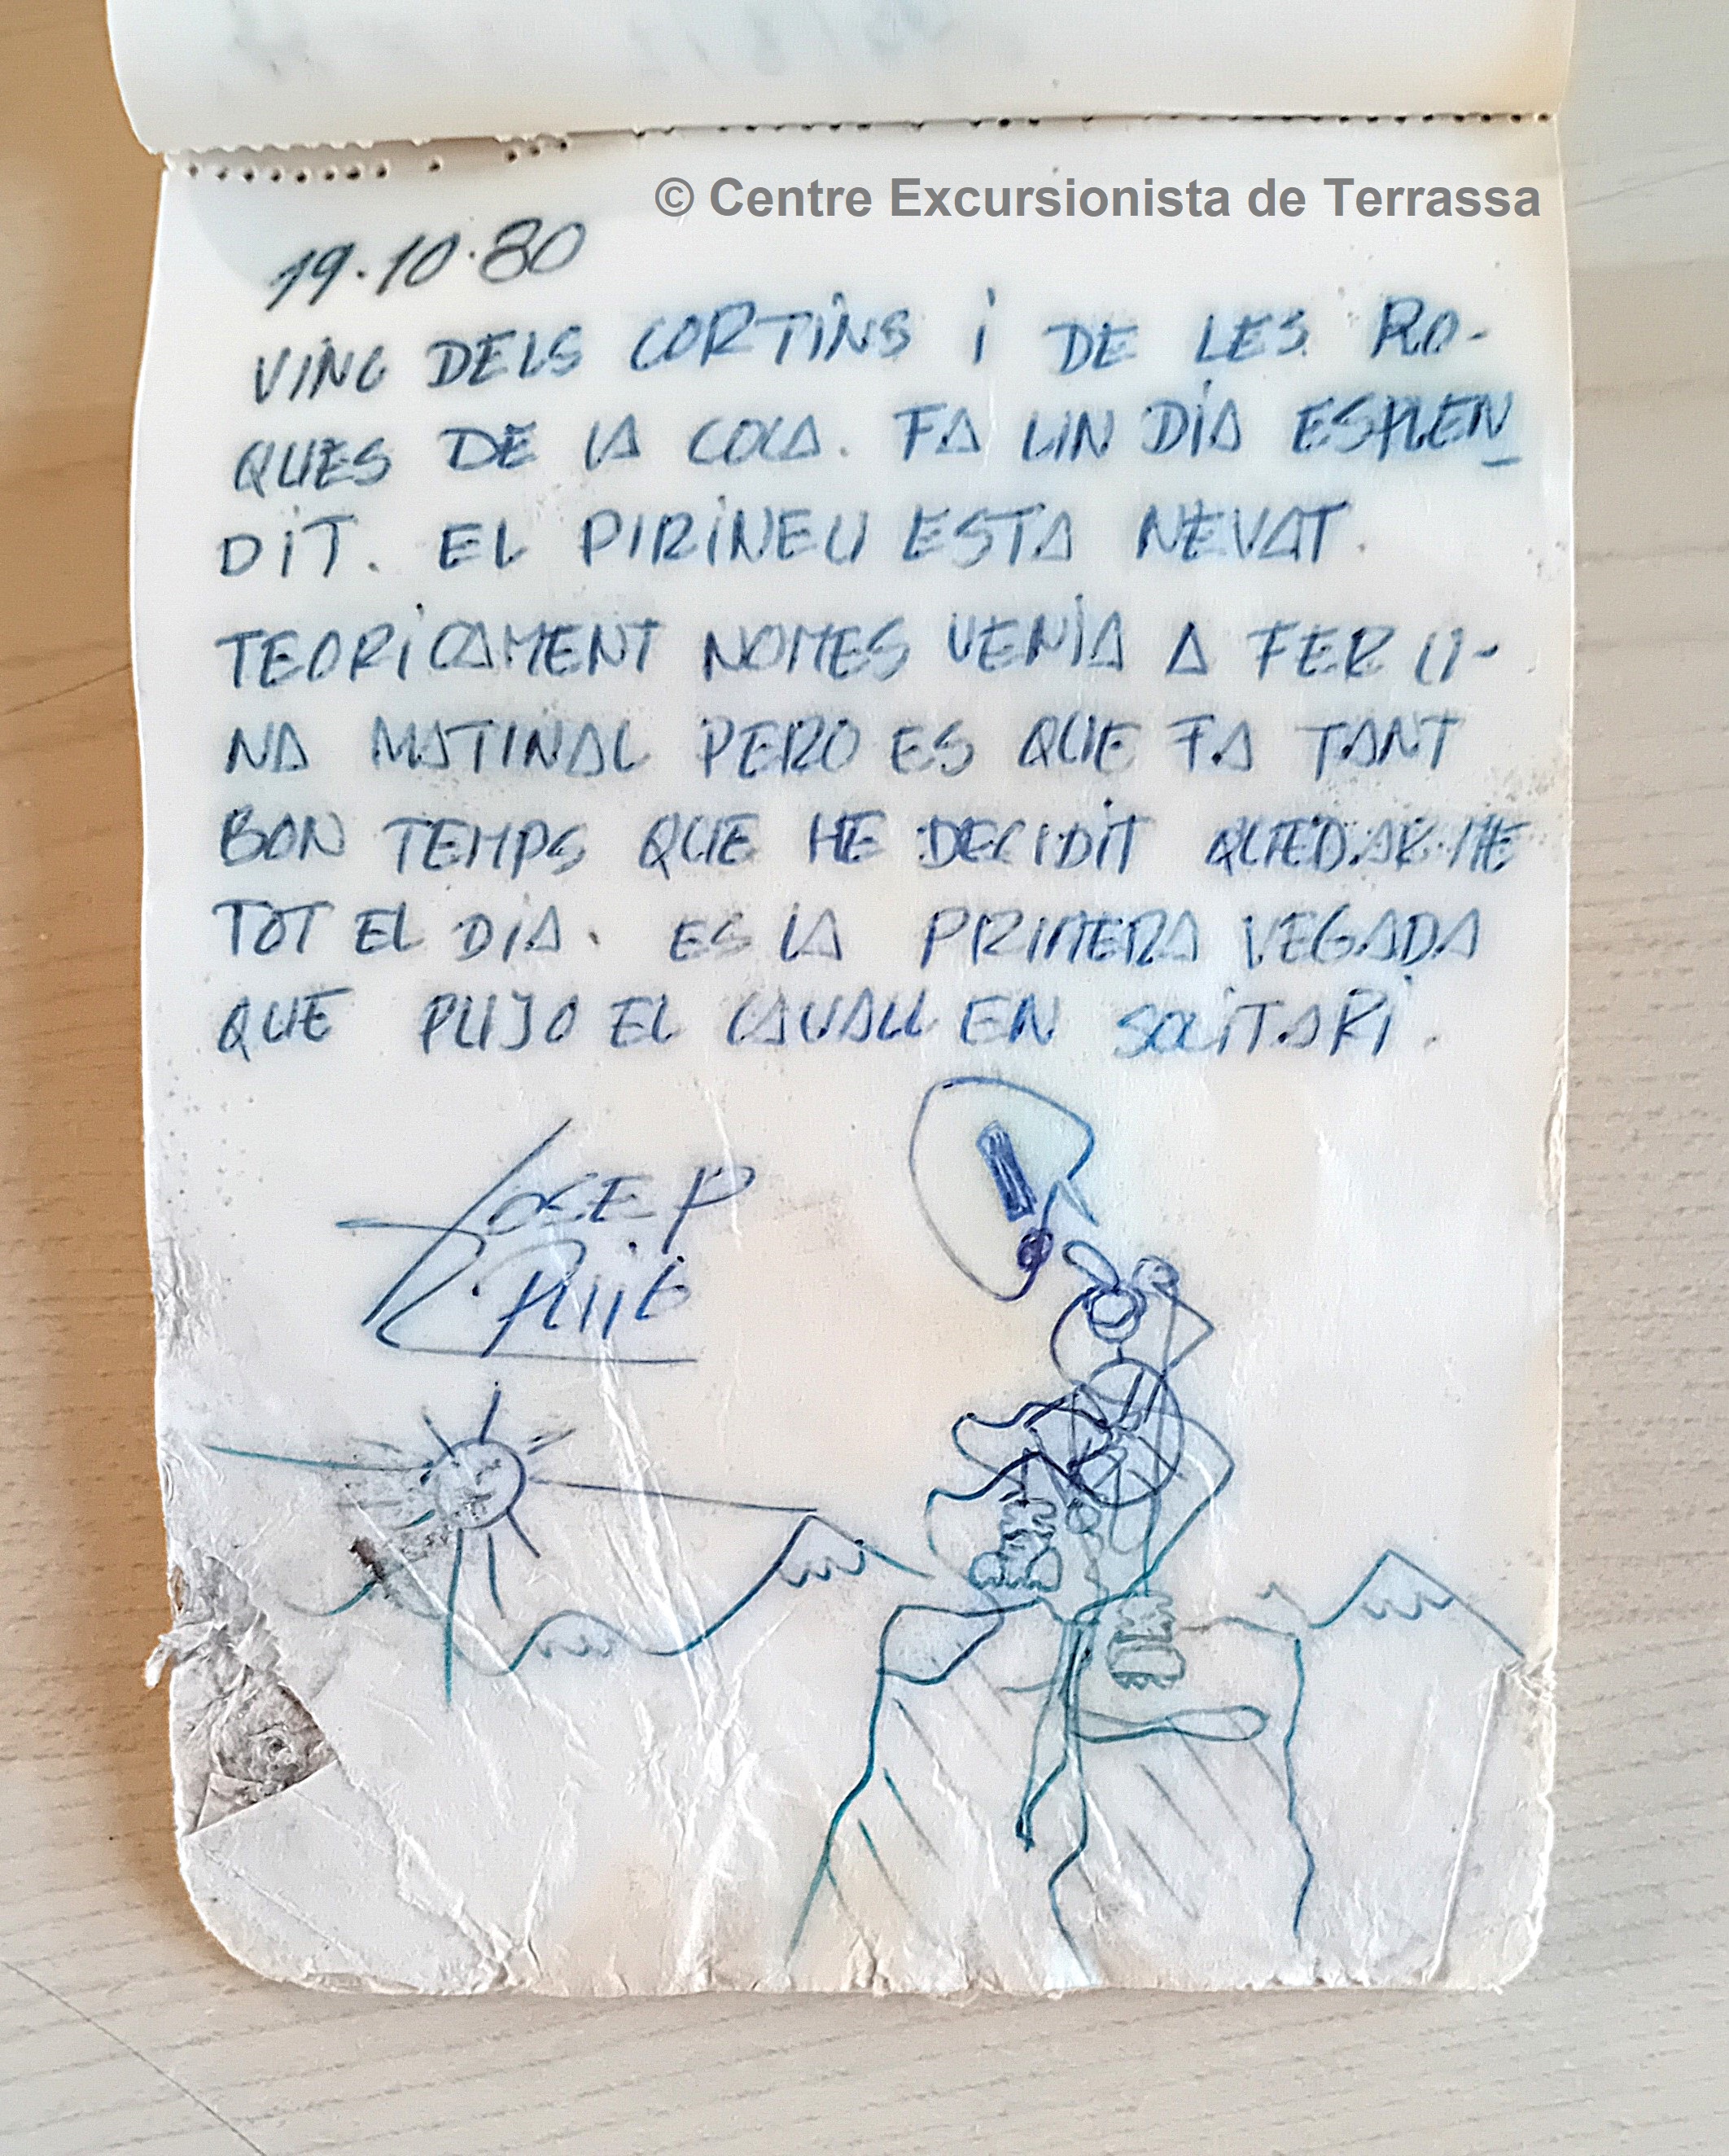 © Centre Excursionista de Terrassa
19.10.80
VINC DELS CORTINS I DE LES RO-
QUES DE LA COCA. FA UN DIA ESPLEN
DIT. EL PIRINEU ESTA NEVAT.
TEORICAMENT NOMES VENIA A FER U-
NA MATINAL PERO ES QUE FA TANT
BON TEMPS QUE HE DECIDIT QUEDAR-ME
TOT EL DIA. ES LA PRIMERA VEGADA
QUE PUJO EL CAVALL EN SOLITARI.
JOSEP
PUIG